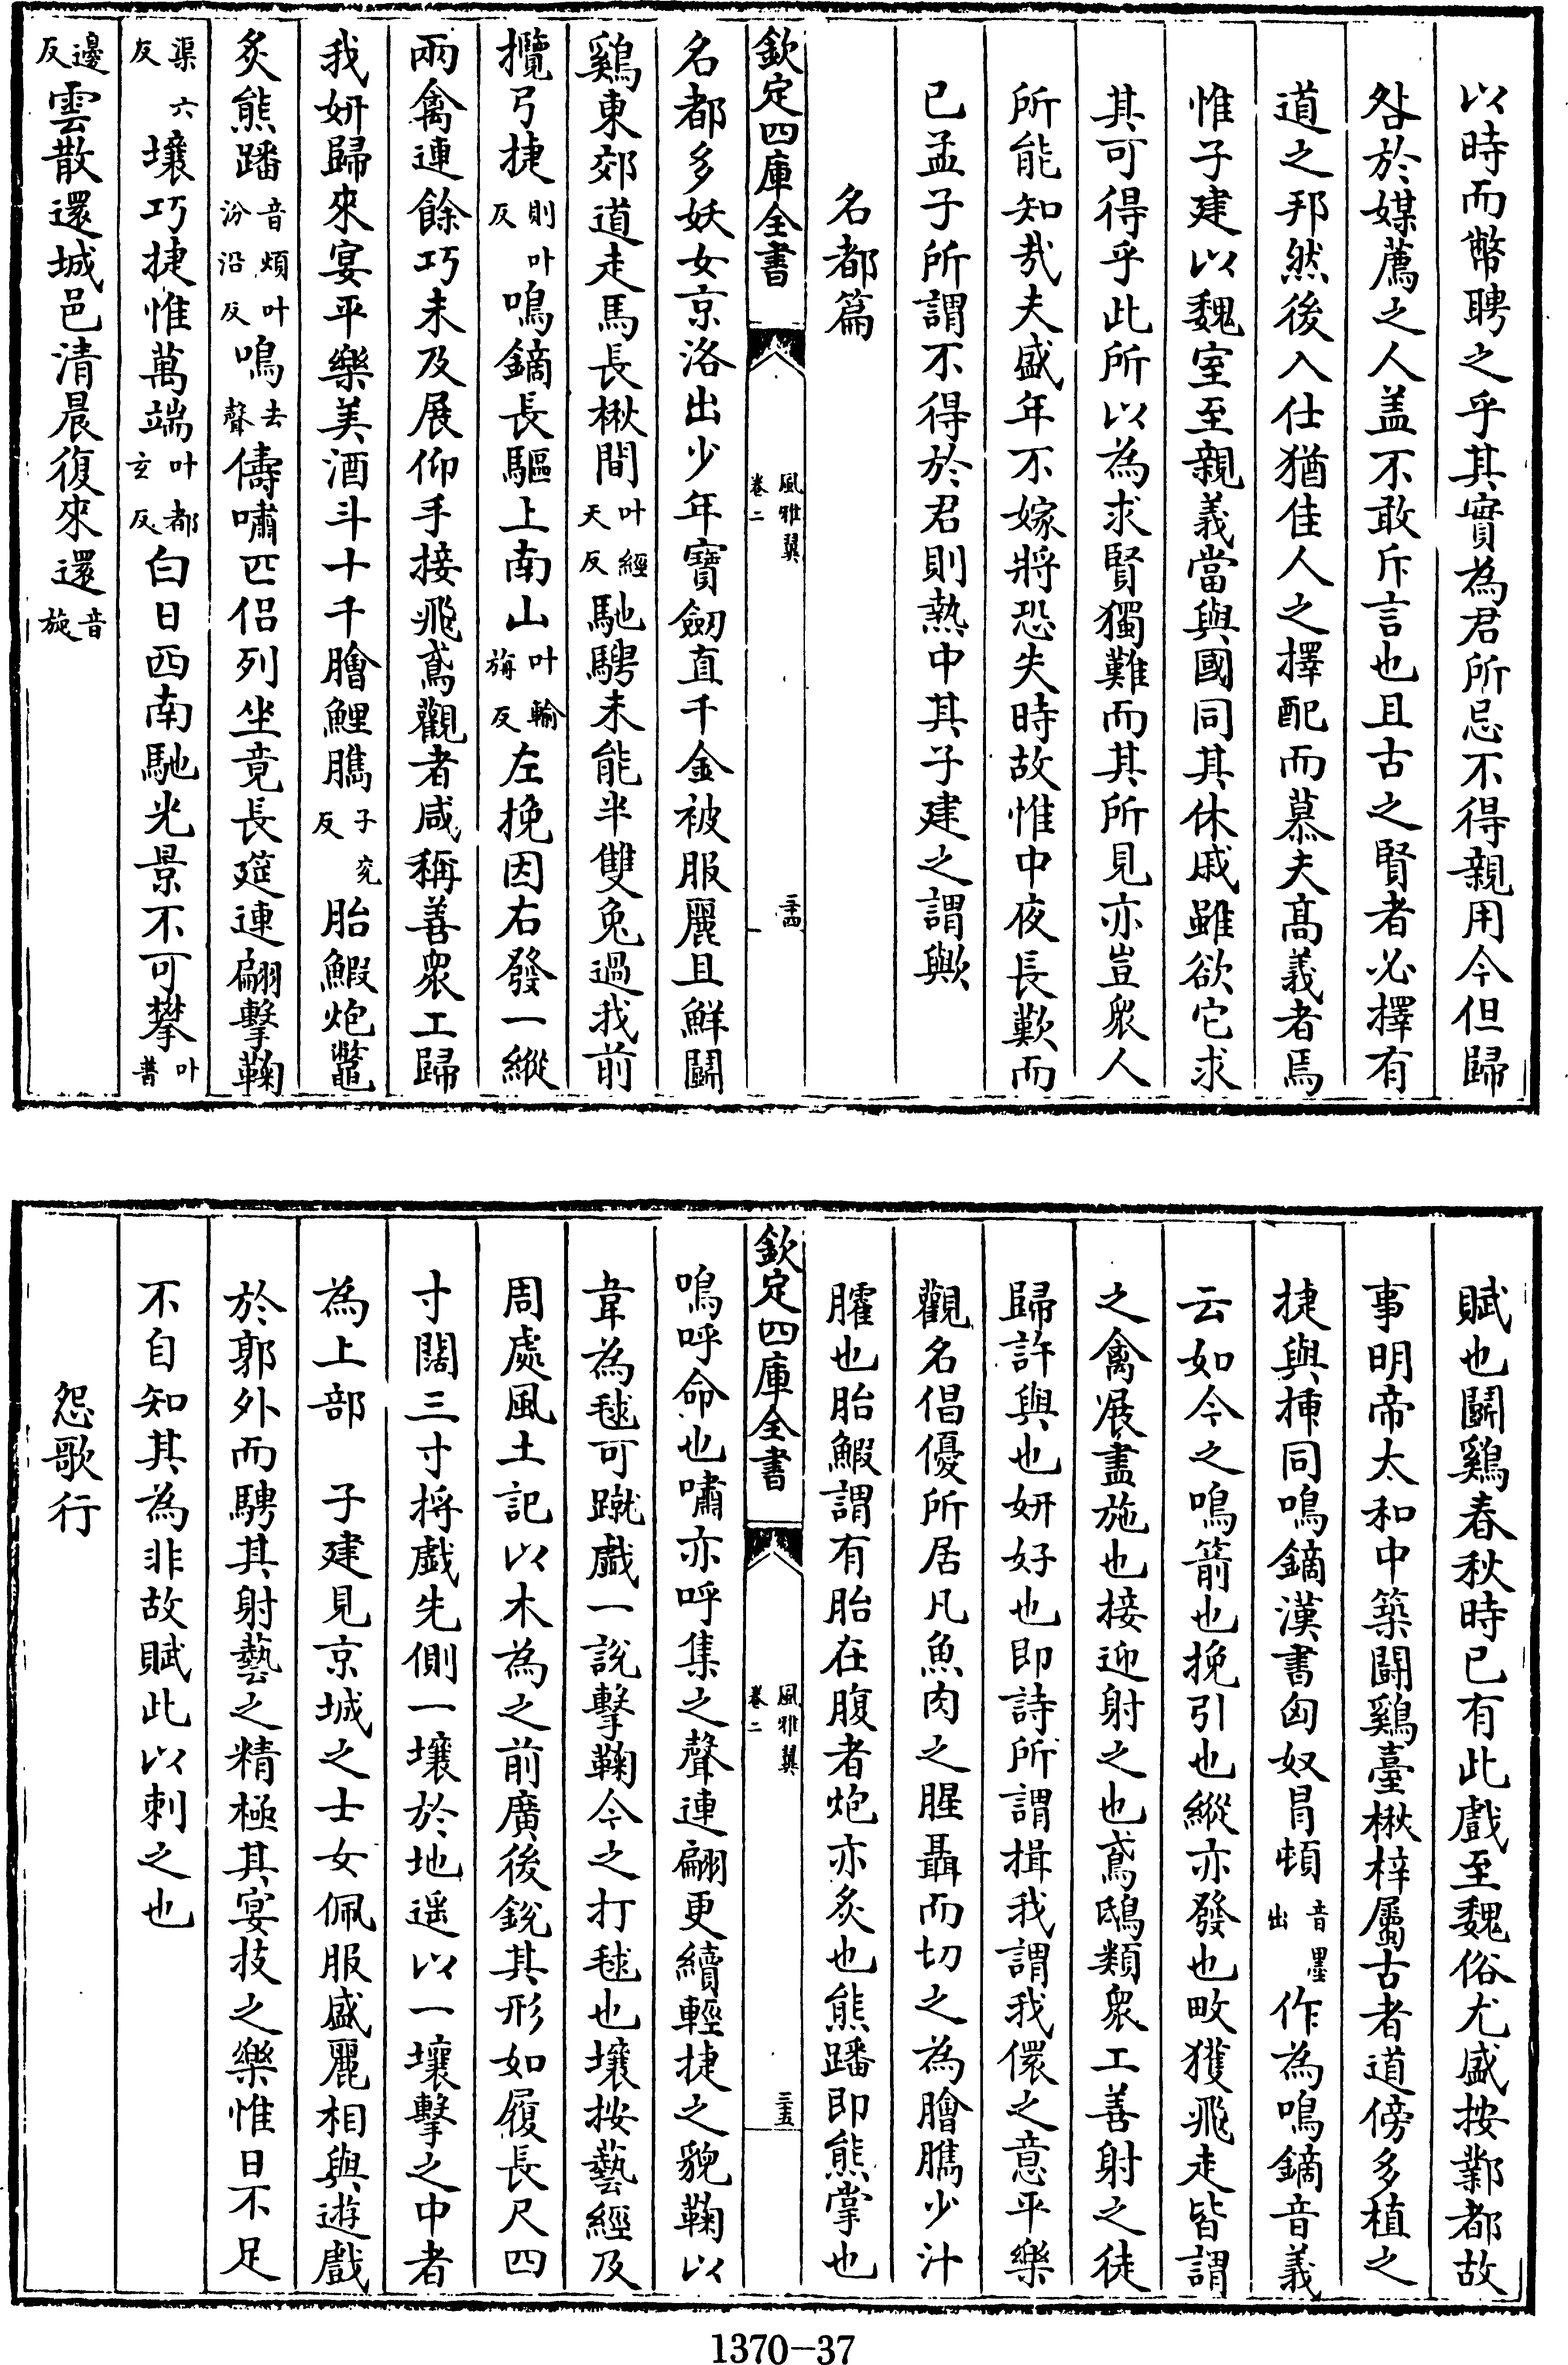 以時而幣聘之乎其實為君所忌不得親用今但歸
咎於媒薦之人盖不敢斥言也且古之賢者必擇有
道之邦然後入仕猶佳人之擇配而慕夫髙義者焉
惟子建以魏室至親義當與國同其休戚雖欲它求
其可得乎此所以為求賢獨難而其所見亦豈衆人
所能知哉夫盛年不嫁將恐失時故惟中夜長歎而
已孟子所謂不得於君則熱中其子建之謂歟
名都篇
欽定四庫全書
風雅翼
卷二
三十四
名都多妖女京洛出少年寶劒直千金被服麗且鮮鬭
鷄東郊道走馬長楸間叶經天反馳騁未能半雙兔過我前
攬弓捷則叶反鳴鏑長驅上南山叶輸旃反左挽因右發一縱
兩禽連餘巧未及展仰手接飛鳶觀者咸稱善衆工歸
我妍歸來宴平樂美酒斗十千膾鯉臇子兖反胎鰕炮鼈
炙熊蹯音煩叶汾沿反鳴去聲儔嘯匹侶列坐竟長筵連翩擊鞠
渠六反壤巧捷惟萬端叶都玄反白日西南馳光景不可攀叶普
邊反雲散還城邑清晨復來還音旋
賦也鬭鷄春秋時已有此戲至魏俗尤盛按鄴都故
事明帝太和中築鬭鷄臺楸梓屬古者道傍多植之
捷與揷同鳴鏑漢書匈奴冒頓音墨出作為鳴鏑音義
云如今之鳴箭也挽引也縱亦發也畋獲飛走皆謂
之禽展盡施也接迎射之也鳶鴟類衆工善射之徒
歸許與也妍好也即詩所謂揖我謂我儇之意平樂
觀名倡優所居凡魚肉之腥聶而切之為膾臇少汁
臛也胎鰕謂有胎在腹者炮亦炙也熊蹯即熊掌也
欽定四庫全書
風雅翼
卷二
三十五
鳴呼命也嘯亦呼集之聲連翩更續輕捷之貌鞠以
韋為毬可蹴戲一說擊鞠今之打毬也壤按藝經及
周處風土記以木為之前廣後銳其形如履長尺四
寸闊三寸將戲先側一壤於地遥以一壤擊之中者
為上部　子建見京城之士女佩服盛麗相與遊戲
於郭外而騁其射藝之精極其宴技之樂惟日不足
不自知其為非故賦此以刺之也
怨歌行
1370-37